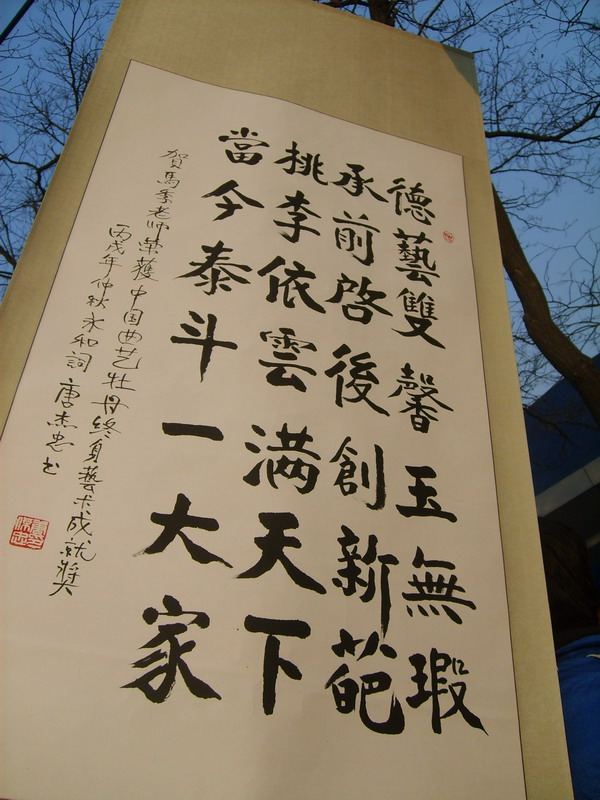 德藝雙馨玉無瑕
承前啓後創新葩
桃李依雲满天下
當今泰斗一大家
賀馬季老师荣獲中国曲艺牡丹终身藝术成就獎
丙戌年仲秋永和詞 唐杰忠书